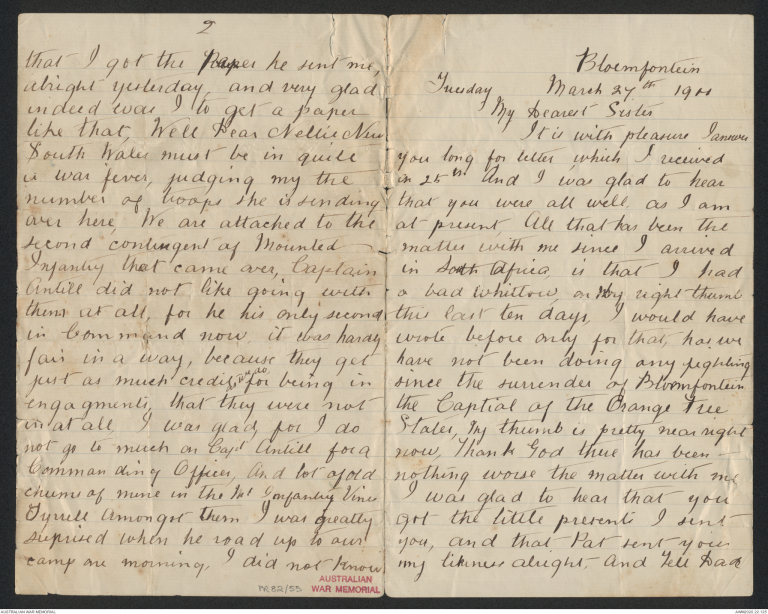 Bloemfontein
Tuesday March 27th 1900
My Dearest Sister
It is with pleasure I answer
you long for letter which I received
on 25th And I was glad to hear
that you were all well, as I am
at present, All that has been the
matter with me since I arrived
in South Africa, is that I had
a bad whittow, on my right thumb
this last ten days, I would have
wrote before only for that, has we
have not been doing any fighting
since the surrender of Bloemfontein
the Captial of the Orange Free
States, My thumb is pretty near right
now, Thank God there has been
nothing worse the matter with me
I was glad to hear that you
got the little presents I sent
you, and that Pat sent you
my likness alright, And Tell Dad
2
that I got the Paper he sent me,
alright yesterday, and very glad
indeed was I to get a paper
like that, Well Dear Nellie New
South Wales must be in quite
a war fever, judging my the
number of troops she is sending
over here, We are attached to the
second contingent of Mounted
Infantry that came over, Captain
Antill did not like going with
them at all, for he his only second
in Command now, it was hardly
fair in a way, because they get
just as much credit as we do for being in
engagments, that they were not
in at all I was glad, for I do
not go to much on Capt Antill for a
Commanding Officer, And lot of old
chums of mine in the Mt Infantry Vince
Tyrrell Amongst them I was greatly
surprised when he road up to our
camp one morning, I did not know
PR82/55
AUSTRALIAN
WAR MEMORIAL
AUSTRALIAN WAR MEMORIAL